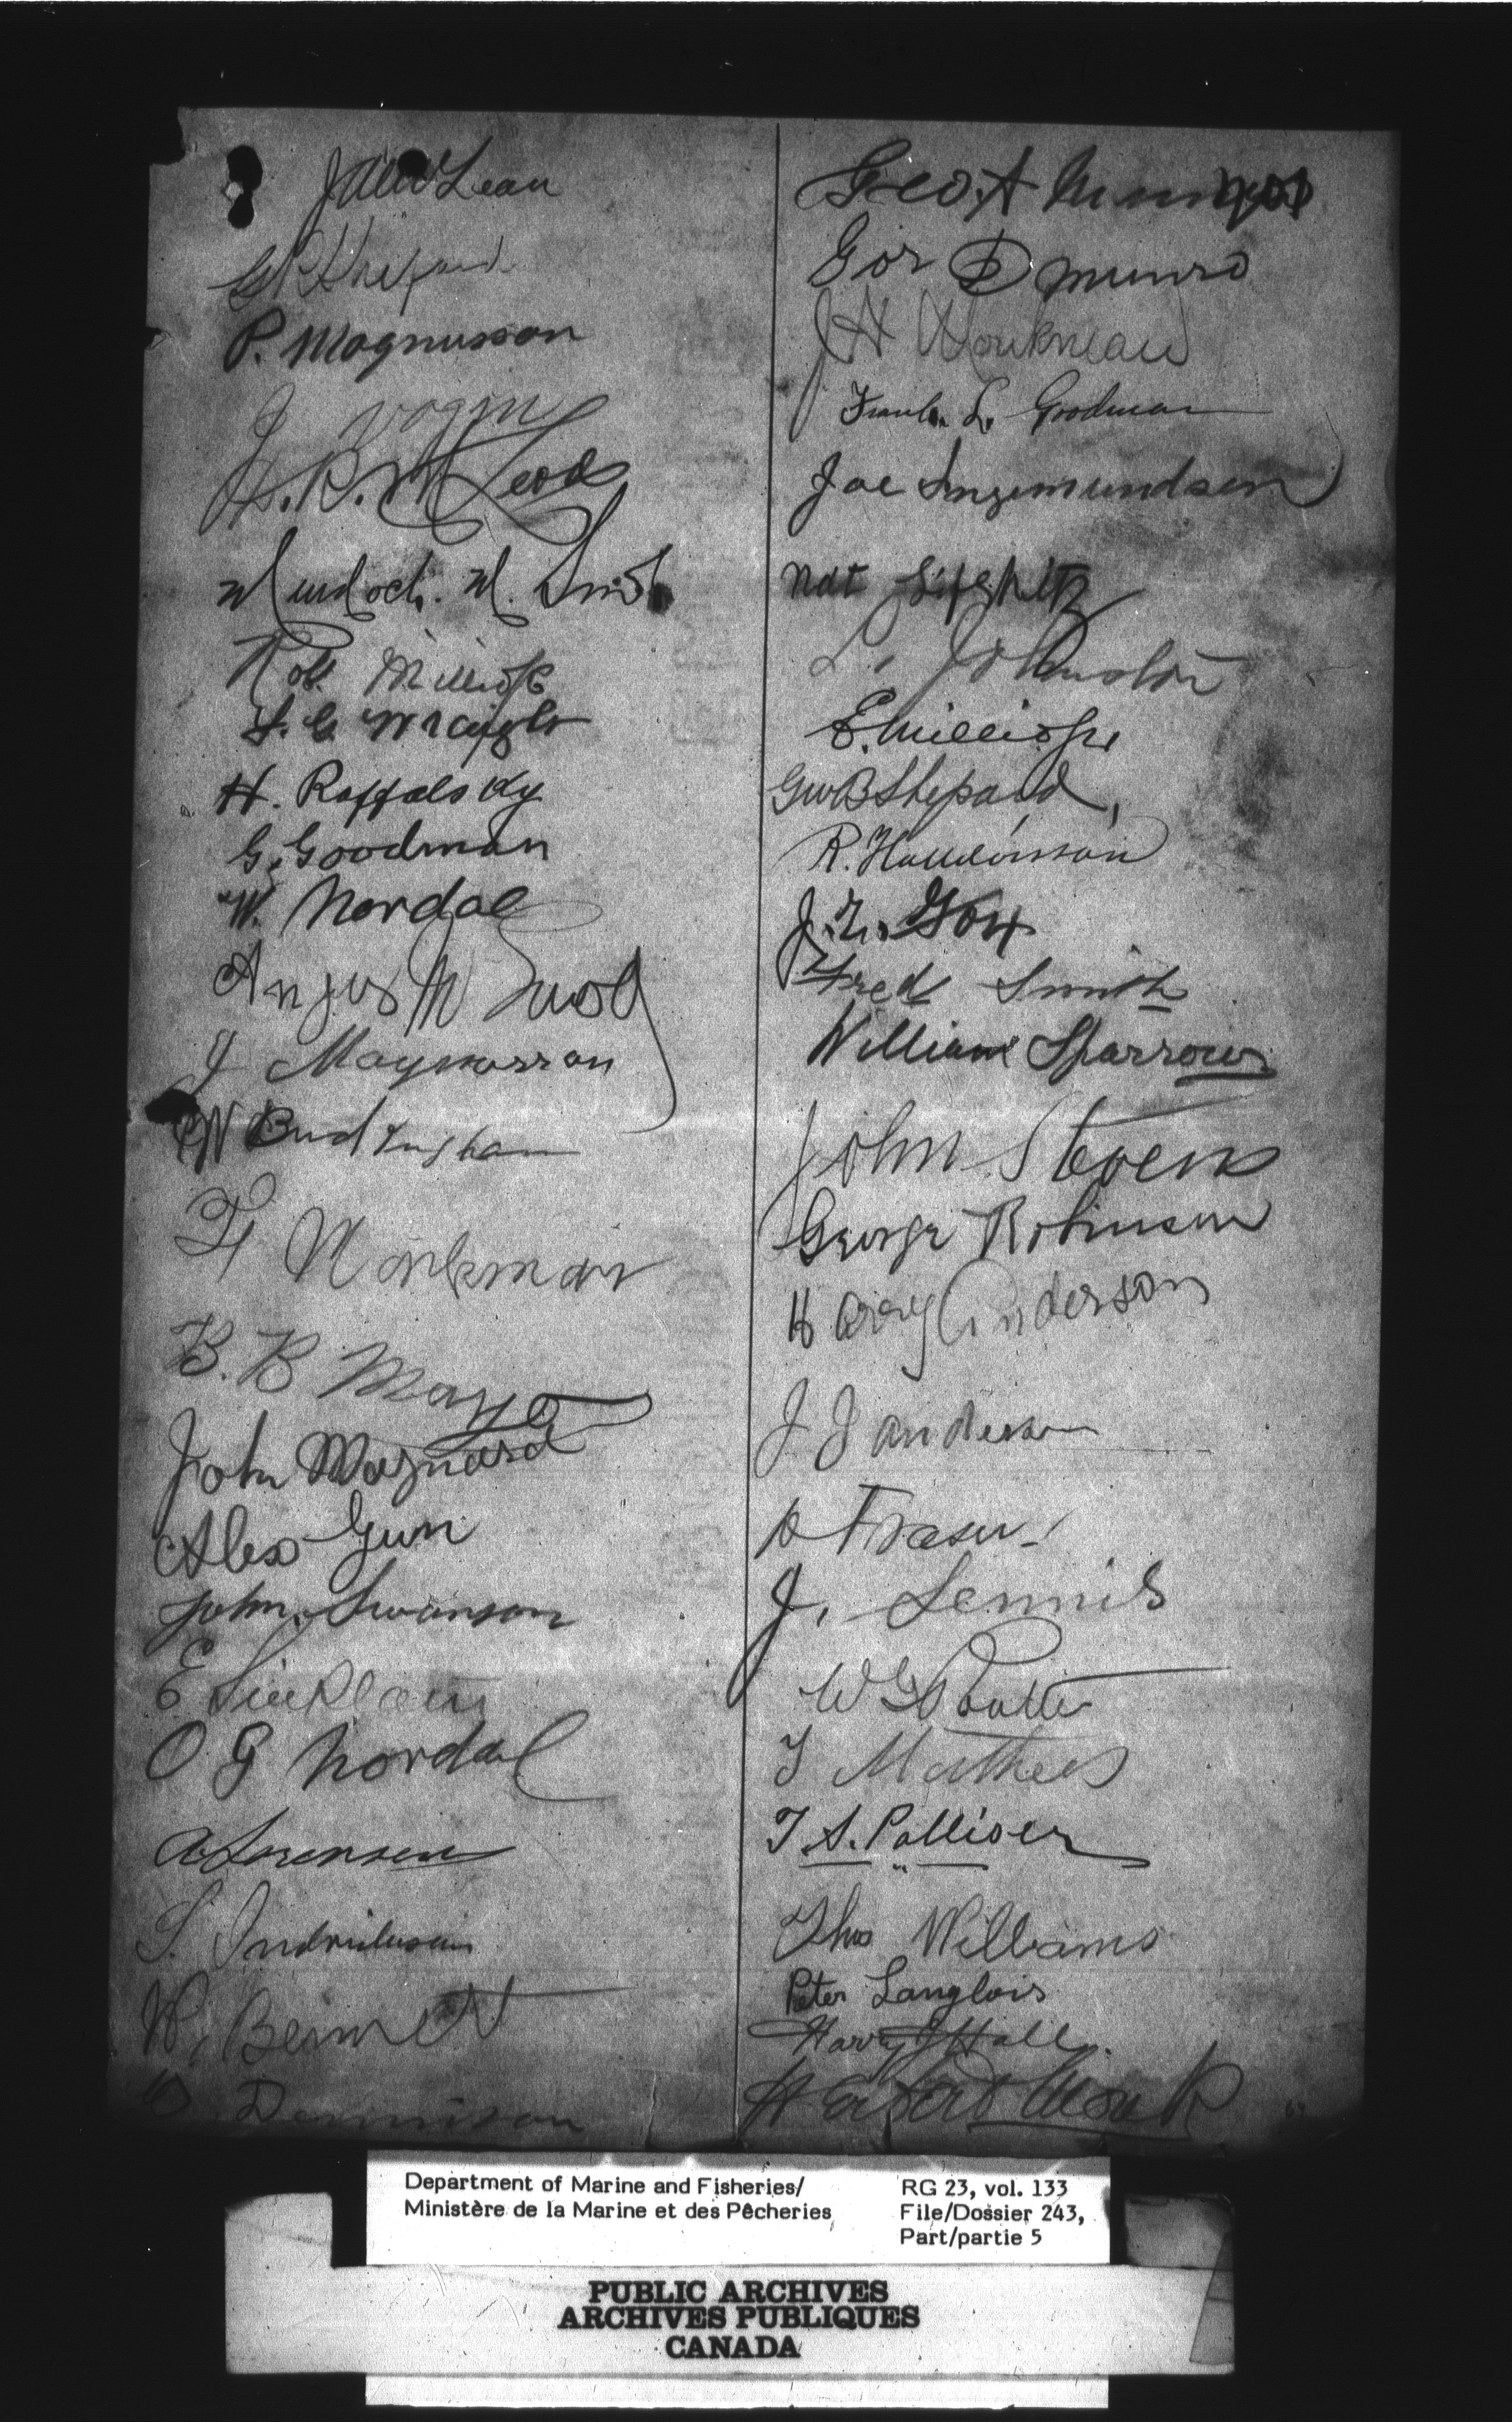 McLean
P. Magnusson
J
McLeod
Murdoch. M. Smith
Robt Milliose
H. Raffalsky
G. Goodman
W. Nordal
Angus McLeod
J Magnusson
W Buckingham
F Workman
B. B Mayo
John Maynard
Alex Gun
John Swanson
E Sinclair
O G Nordal
A Sorensen
S. Indridason
W. Bennett
Dennison
Geo. A
Geo D Munro
J H Workman
Frank L. Goodman
Joe Ingimundsen
Nat Lifshitz
L. Johnston
E. Milliose
Geo B Shepard,
R. Halldorsson
J. L.
Fred Smith
William Sparrow
John Stevens
George Robinson
Harry Anderson
J J Anderson
Fraser
J. Lennis
W
Mathews
T S. Palliser
Thos Williams
Peter Langlois
Harry J Hall.
Herbert
Department of Marine and Fisheries/
Ministère de la Marine et des Pêcheries
RG 23, vol. 133
File/Dossier 243,
Part/partie 5
PUBLIC ARCHIVES
ARCHIVES PUBLIQUES
CANADA